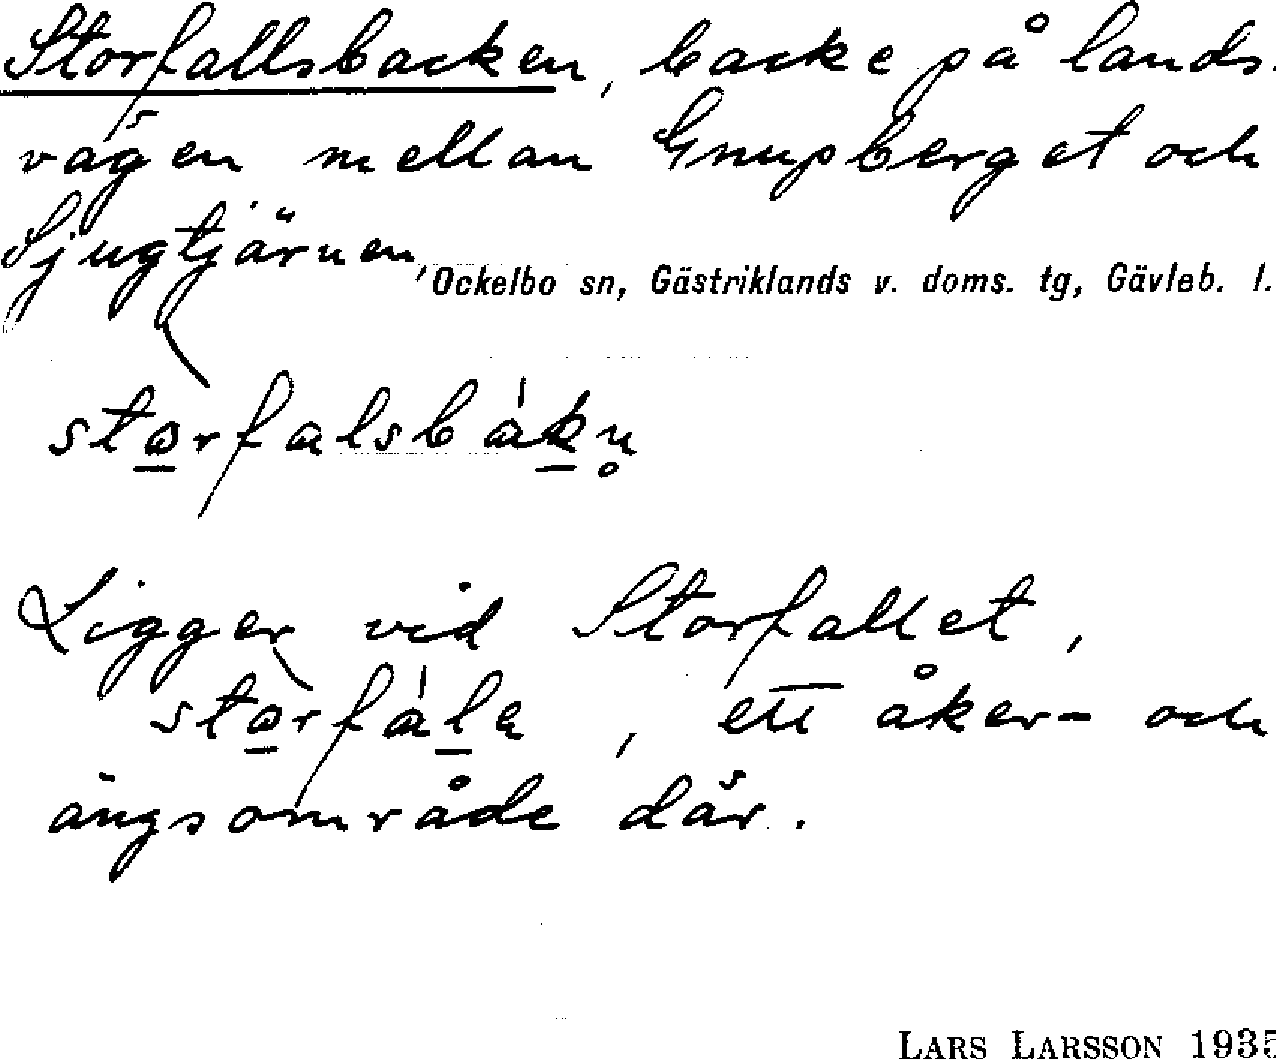 Storfallsbacken, backe på lands-
vägen mellan Gnupberget och
Sjugtjärnen,
Ockelbo sn, Gästriklands v. doms. tg, Gävleb. l.
storfalsbákn̥
Ligger vid Storfallet,
storfála, ett åker- och
ängsområde där.
LARS LARSSON 1935